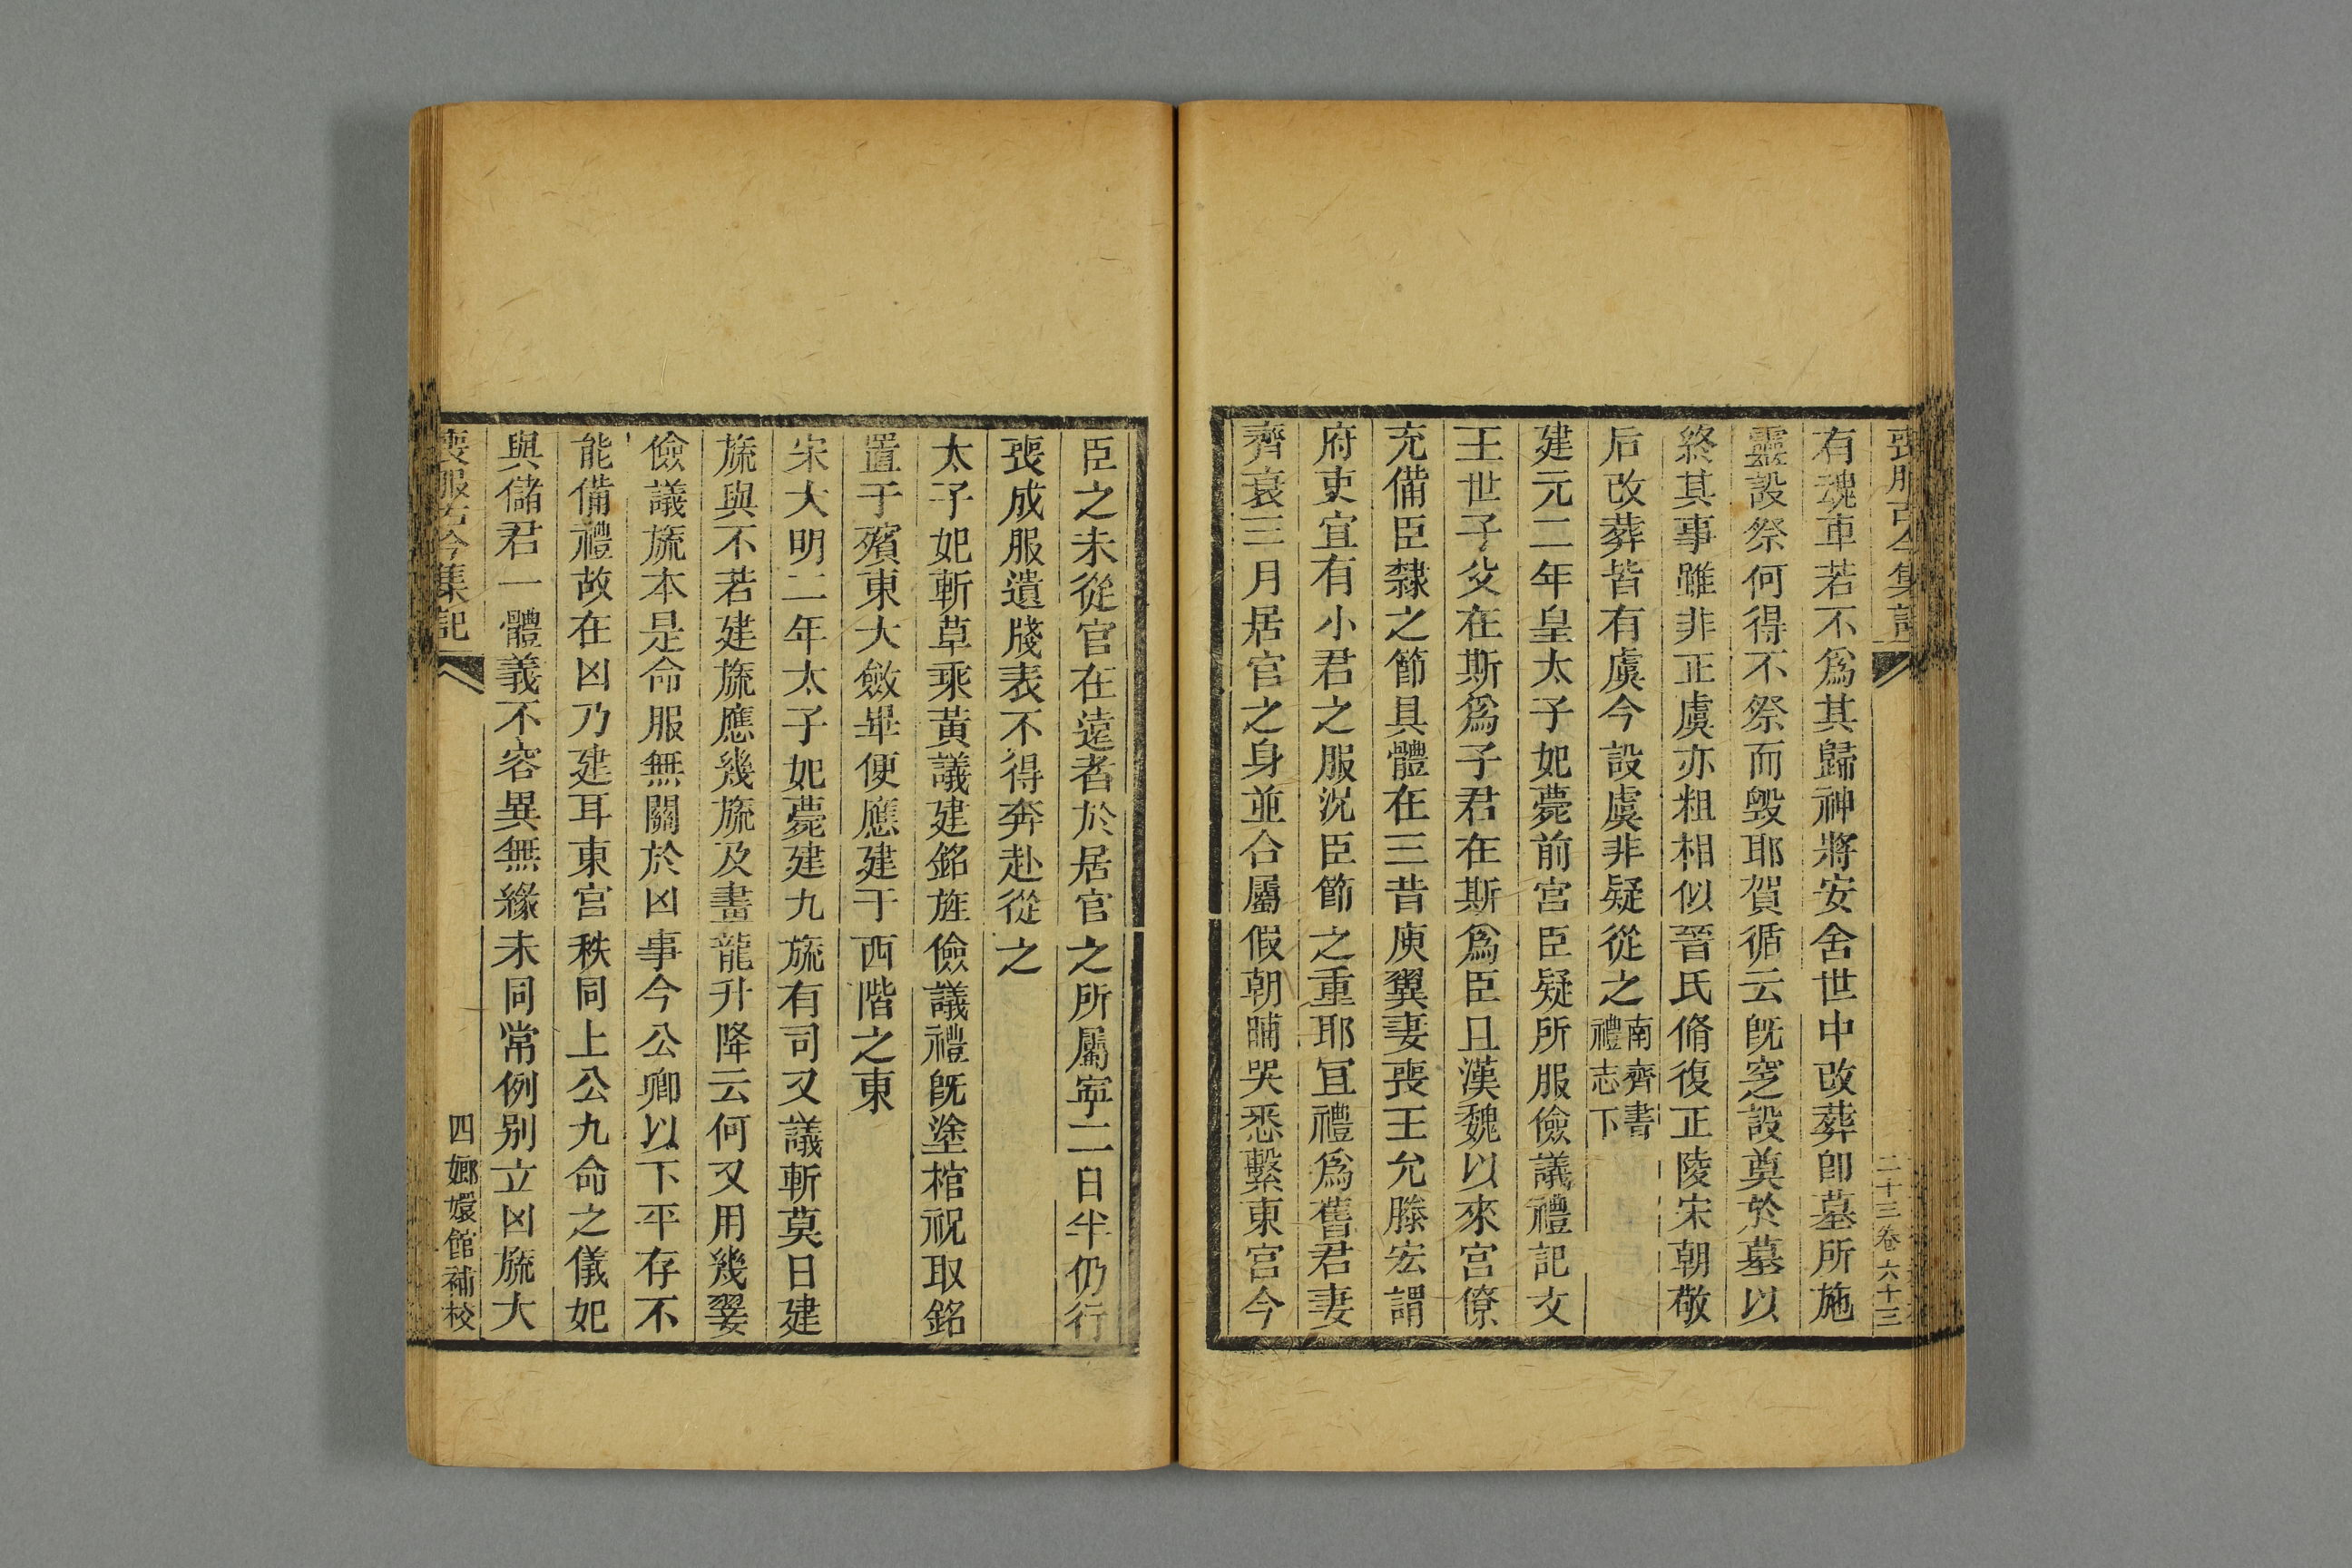 喪服古今集記
二十三卷 六十三
有魂車若不爲其歸神將安舍世中改葬卽墓所施
靈設祭何得不祭而毀耶賀循云旣窆設奠於墓以
終其事雖非正虞亦粗相似晉氏脩復正陵宋朝敬
后改葬皆有虞今設虞非疑從之南齊書禮志下
建元二年皇太子妃薨前宮臣疑所服儉議禮記文
王世子父在斯爲子君在斯爲臣且漢魏以來宮僚
充備臣隸之節具體在三昔庾翼妻喪王允滕宏謂
府吏宜有小君之服況臣節之重耶宜禮爲舊君妻
齊衰三月居官之身並合屬假朝晡哭悉繫東宮今
臣之未從官在遠者於居官之所屬寧二日半仍行
喪成服遣牋表不得奔赴從之
太子妃斬草乘黃議建銘旌儉議禮旣塗棺祝取銘
置于殯東大斂畢便應建于西階之東
宋大明二年太子妃薨建九旒有司又議斬莫日建
旒與不若建旒應幾旒及畫龍升降云何又用幾翣
儉議旒本是命服無關於凶事今公卿以下平存不
能備禮故在凶乃建耳東宮秩同上公九命之儀妃
與儲君一體義不容異無緣未同常例別立凶旒大
喪服古今集記
四 嫏嬛館補校